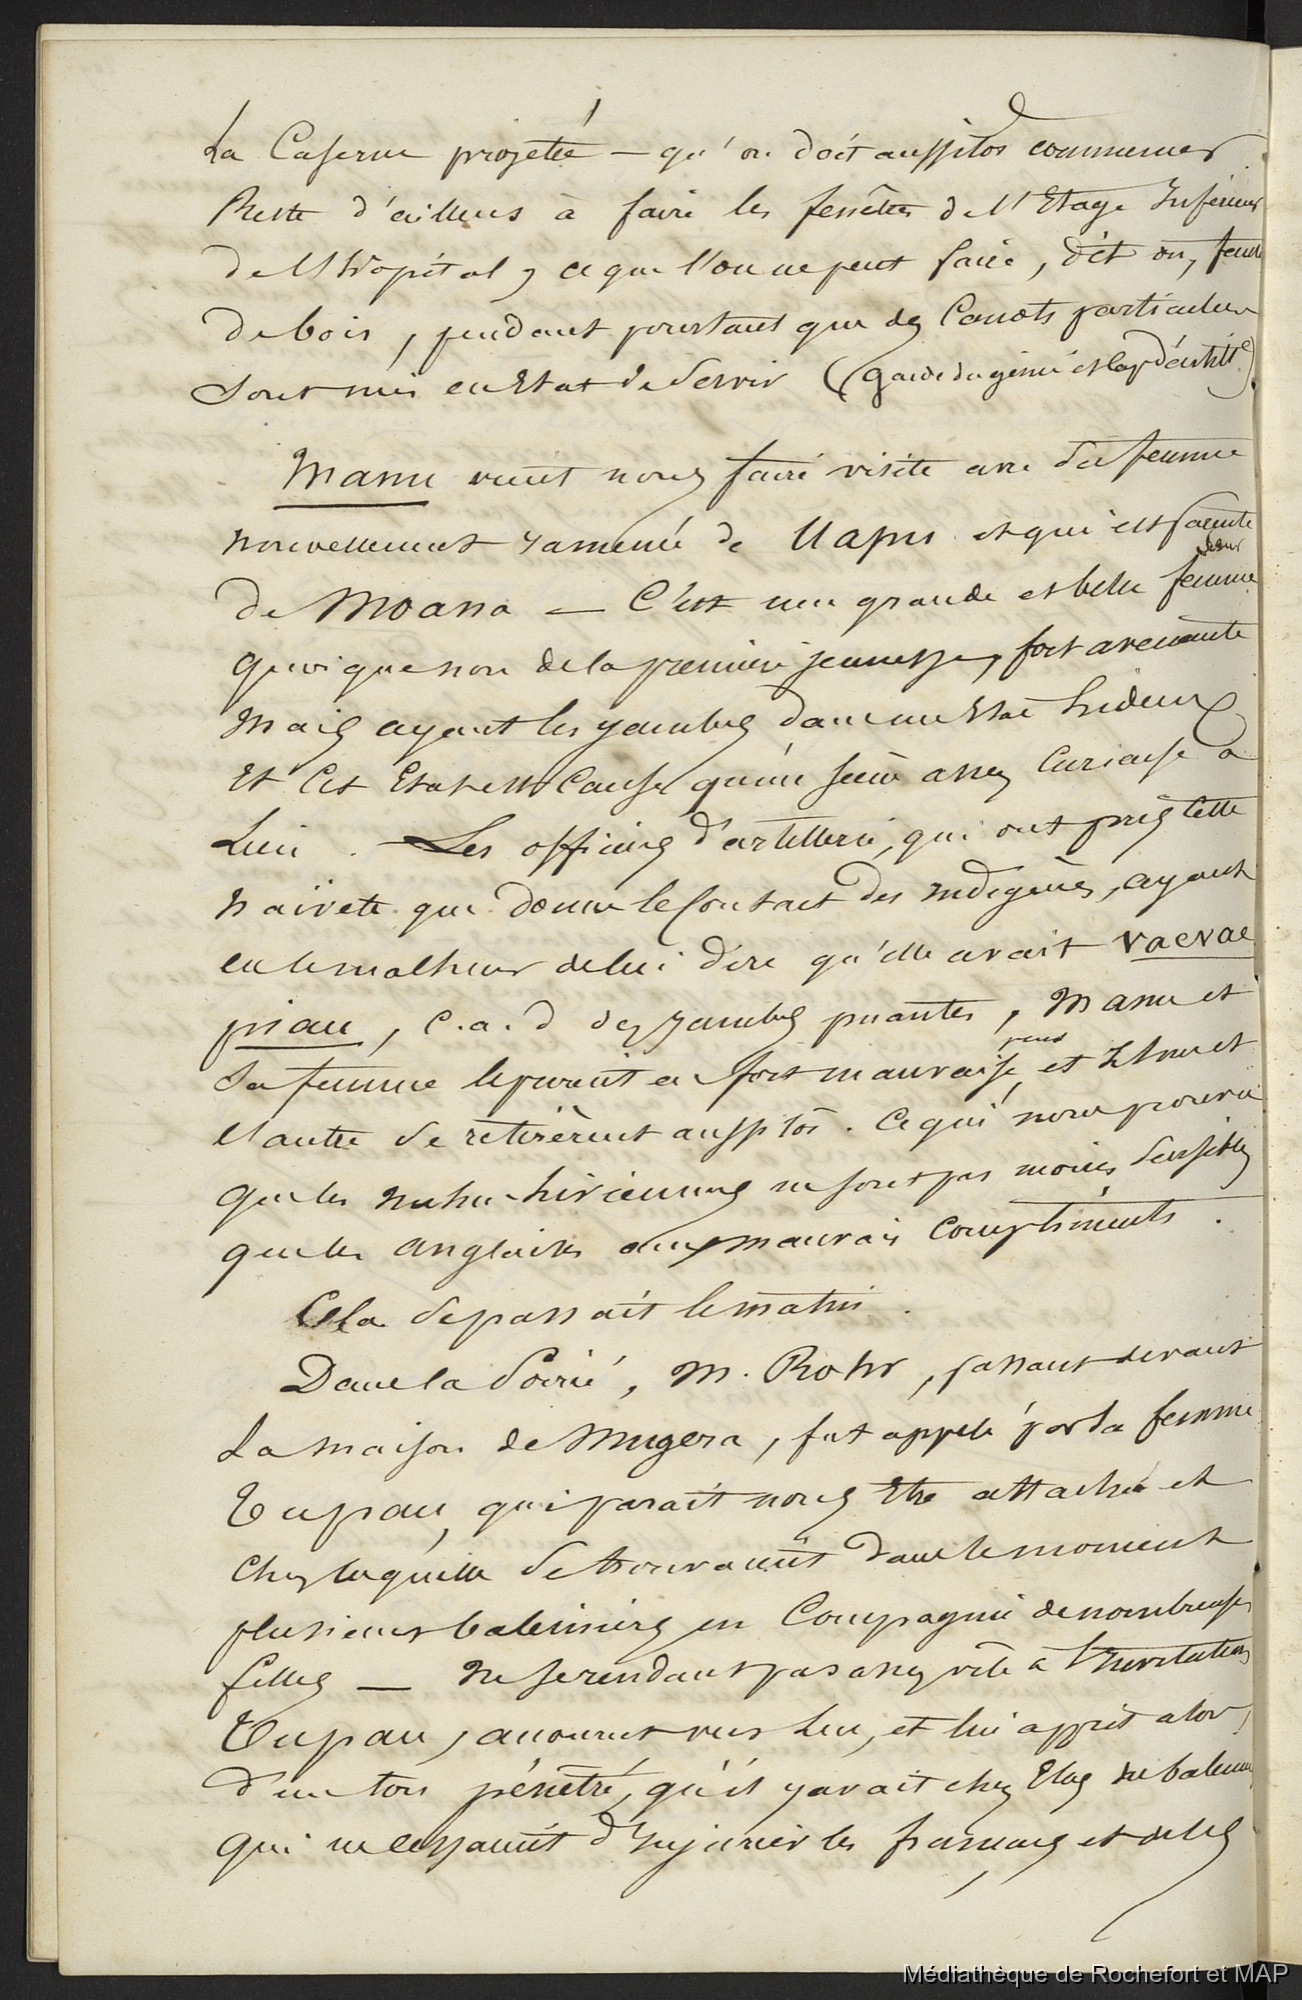 La Caserne projetée — qu'on doit aussitôt commencer
Reste d'ailleurs à faire les fenêtres de l'Etage Inférieur
de l'hôpital, ce que l'on ne peut faire, dit on, faute
de bois, pendant pourtant que des Canots particuliers
sont mis en Etat de servir (garde du génie et Cap d'artill<sup>e</sup>).
Manu vient nous faire visite avec sa femme
nouvellement ramenée de Uapu et qui est parente
de Moana — C'est une grande et belle femme
quoique non de la première jeunesse, fort avenante
Mais ayant les jambes dans un Etat hideux
Et Cet Etat est Cause qu'une scène assez Curieuse a
Lieu. — Les officiers d'artillerie, qui ont pris cette
naïveté que donne le Contact des indigènes, ayant
eu le malheur de lui dire qu'elle avait vaevae
piau, c.a.d des jambes puantes, Manu et
sa femme le prirent en fort mauvaise part et l'un et
l'autre se retirèrent aussitôt. Ce qui nous prouva
que les nuhu-hiviennes ne sont pas moins sensibles
que les anglaises aux mauvais compliments.
Cela se passait le matin.
Dans la Soirée, M. Rohr, passant devant
La maison de Mugera, fut appelé par la femme
Tupau, qui parait nous être attachée et
chez laquelle se trouvaient dans le moment
plusieurs baleiniers en Compagnie de nombreuses
filles — Ne se rendant pas assez vite à l'Invitation
Tupau, accourut vers Lui, et lui apprit alors,
d'un ton pénétré, qu'il y avait chez Elle des baleiniers
qui ne cessaient d'Injurier les français et de les
Médiathèque de Rochefort et MAP